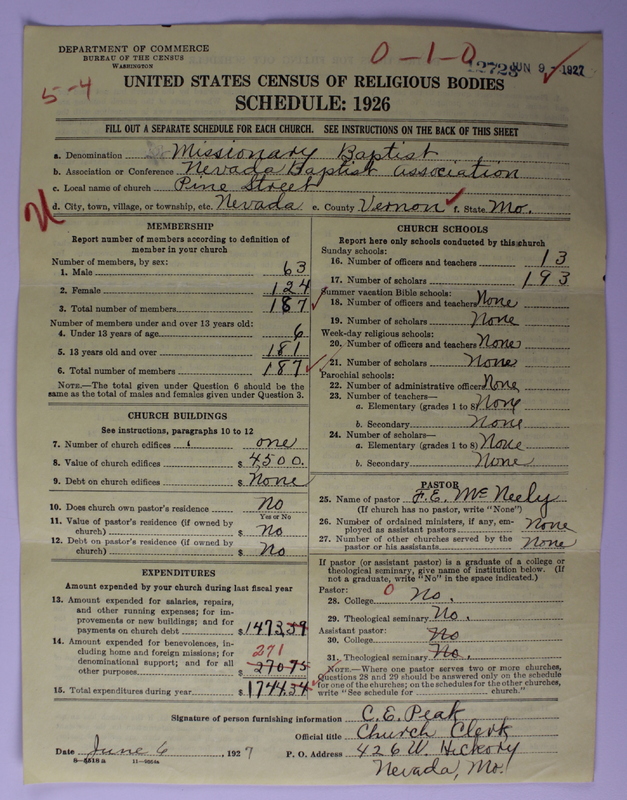 DEPARTMENT OF COMMERCE
BUREAU OF THE CENSUS
WASHINGTON
0-1-0
12723 JUN 9-1927
5-4
UNITED STATES CENSUS OF RELIGIOUS BODIES
SCHEDULE: 1926
FILL OUT A SEPARATE SCHEDULE FOR EACH CHURCH. SEE INSTRUCTIONS ON THE BACK OF THIS SHEET
a. Denomination Missionary Baptist
b. Association or Conference Nevada Baptist Association
c. Local name of church Pine Street
d. City, town, village, or township, etc. Nevada e. County Vernon f. State Mo.
MEMBERSHIP
Report number of members according to definition of
member in your church
Number of members, by sex:
1. Male 63
2. Female 124
3. Total number of members 187
Number of members under and over 13 years old:
4. Under 13 years of age 6
5. 13 years old and over 181
6. Total number of members 187
NOTE.—The total given under Question 6 should be the
same as the total of males and females given under Question 3.
CHURCH BUILDINGS
See instructions, paragraphs 10 to 12
7. Number of church edifices one
8. Value of church edifices $ 4500.
9. Debt on church edifices $ None
10. Does church own pastor's residence No
Yes or No
11. Value of pastor's residence (if owned by
church) $ No
12. Debt on pastor's residence (if owned by
church) $ No
EXPENDITURES
Amount expended by your church during last fiscal year
13. Amount expended for salaries, repairs,
and other running expenses; for im-
provements or new buildings; and for
payments on church debt $ 1473,59
14. Amount expended for benevolences, in-
cluding home and foreign missions; for 271
denominational support; and for all
other purposes $ 270 75
15. Total expenditures during year $ 1744,34
CHURCH SCHOOLS
Report here only schools conducted by this church
Sunday schools:
16. Number of officers and teachers 13
17. Number of scholars 193
Summer vacation Bible schools:
18. Number of officers and teachers None
19. Number of scholars None
Week-day religious schools:
20. Number of officers and teachers None
21. Number of scholars None
Parochial schools:
22. Number of administrative officers None
23. Number of teachers—
a. Elementary (grades 1 to 8) None
b. Secondary None
24. Number of scholars—
a. Elementary (grades 1 to 8) None
b. Secondary None
PASTOR
25. Name of pastor F. E. McNeely
(If church has no pastor, write "None")
26. Number of ordained ministers, if any, em-
ployed as assistant pastors None
27. Number of other churches served by the
pastor or his assistants None
If pastor (or assistant pastor) is a graduate of a college or
theological seminary, give name of institution below. (If
not a graduate, write "No" in the space indicated.)
Pastor:
28. College 0 No.
29. Theological seminary No.
Assistant pastor:
30. College No
31. Theological seminary No.
NOTE.—Where one pastor serves two or more churches,
Questions 28 and 29 should be answered only on the schedule
for one of the churches; on the schedules for the other churches,
write "See schedule for church."
Signature of person furnishing information C. E. Peak
Official title Church Clerk
Date June 6, 1927 P. O. Address 426 W. Hickory
8-5518a 11-9264a
Nevada, Mo.